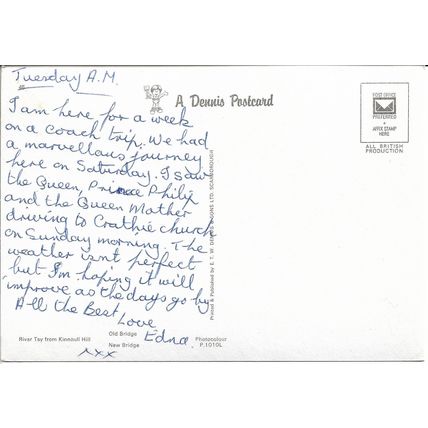 Tuesday A.M.
I am here for a week
on a coach trip. We had
a marvellous journey
here on Saturday. I saw
the Queen, Prince Philip
and the Queen Mother
driving to Crathie church
on Sunday morning. The
weather isn't perfect
but I'm hoping it will
improve as the days go by
All the Best
Love
Edna
xxx
A Dennis Postcard
POST OFFICE
PREFERRED
AFFIX STAMP
HERE
ALL BRITISH
PRODUCTION
Printed & Published by E. T. W. DENNIS & SONS LTD. SCARBOROUGH
River Tay from Kinnoull Hill
Old Bridge
New Bridge
Photocolour
P.1010L